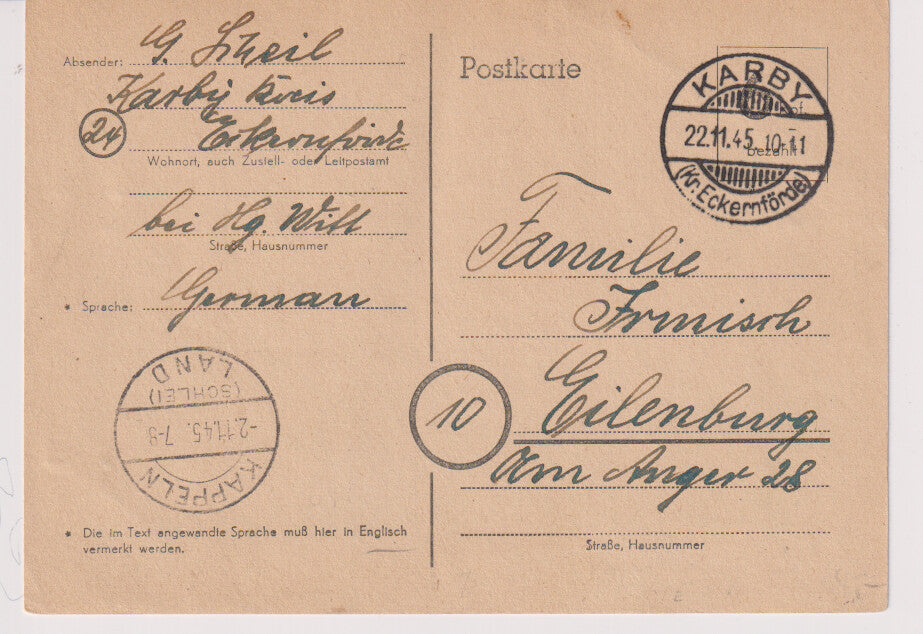 Absender: G. Scheil
Karby Kreis
24
Eckernförde
Wohnort, auch Zustell- oder Leitpostamt
bei Hg. Witt
Straße, Hausnummer
* Sprache: German
KAPPELN
-2.11.45. 7-8
(SCHLEI)
LAND
* Die im Text angewandte Sprache muß hier in Englisch
vermerkt werden.
Postkarte
bezahlt
KARBY
22.11.45. 10-11
(Kr. Eckernförde)
Familie
Irmisch
10
Eilenburg
Am Anger 28
Straße, Hausnummer